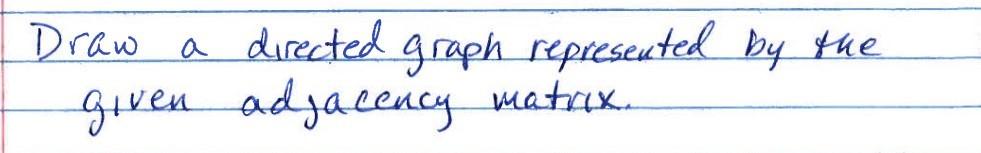 Draw a directed graph represented by the
given adjacency matrix.